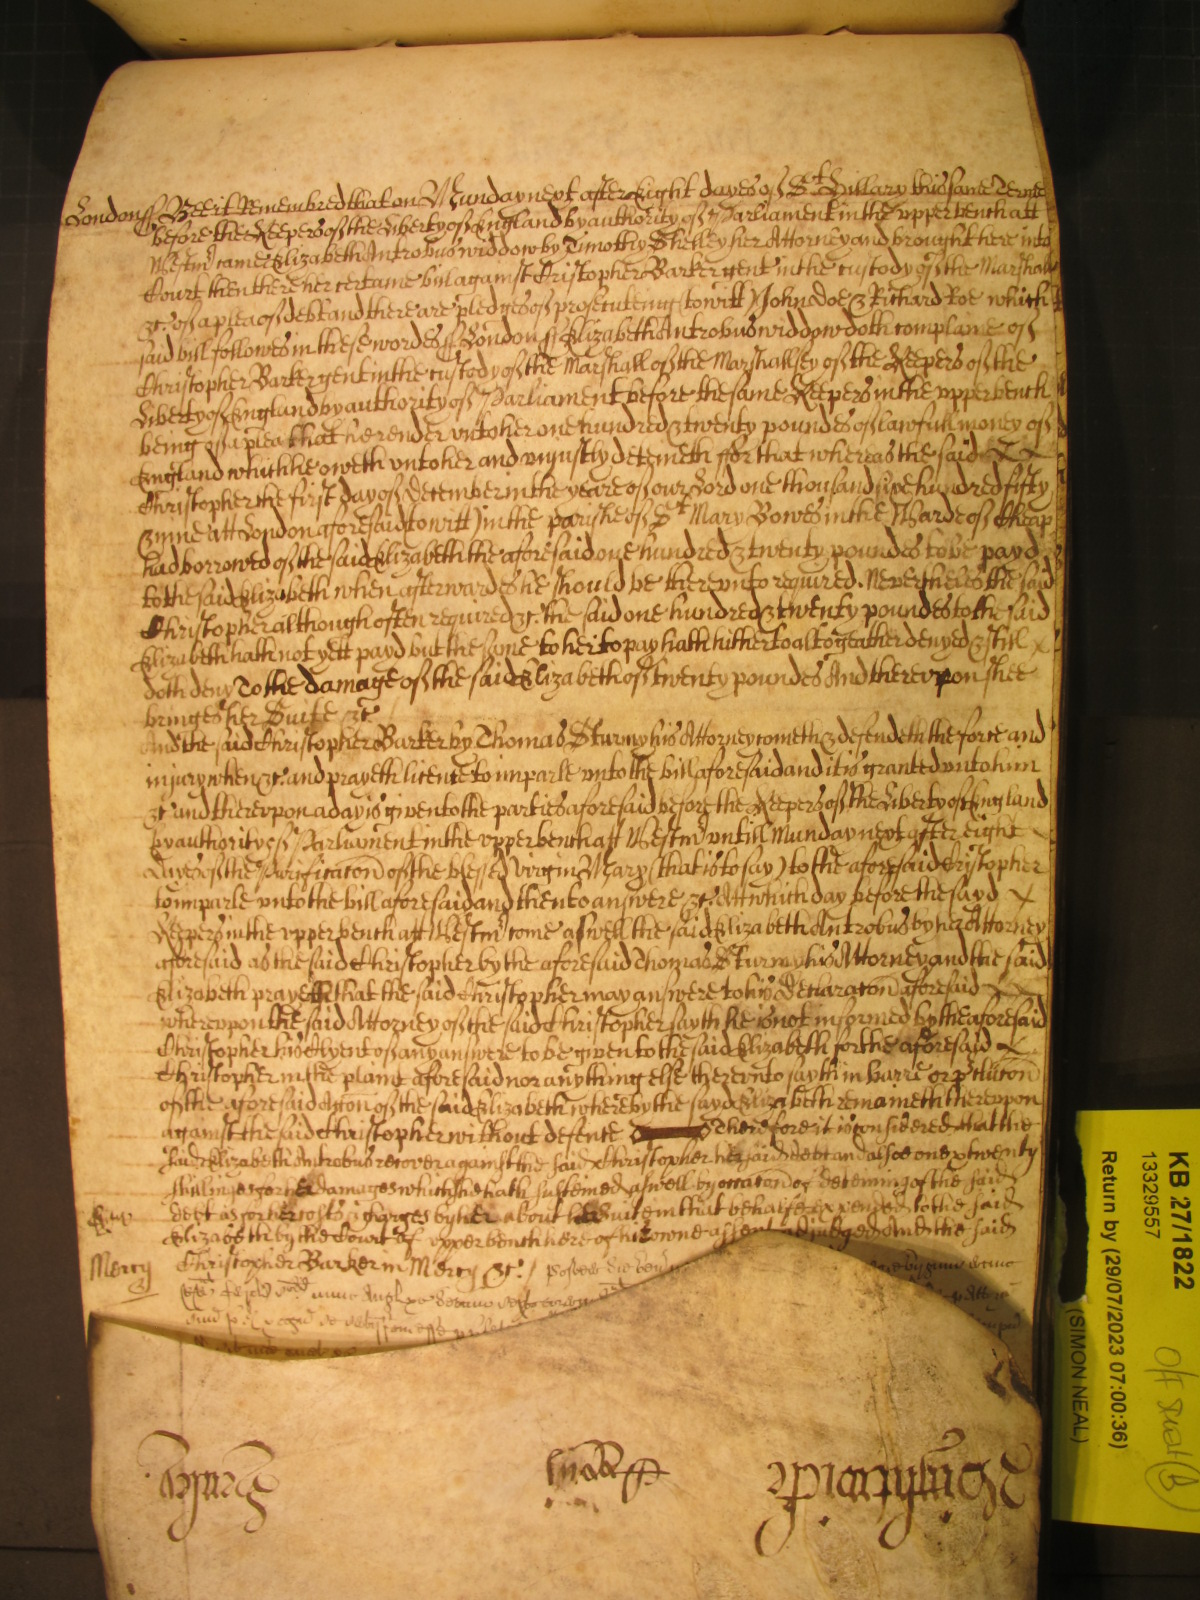 London ss Bee it Remembred that on Munday next after Eight dayes of St Hillary this same Terme
before the Keepers of the Liberty of England by authority of Parliament in the upper bench att
Westmr came Elizabeth Antrobus widdow by Timothy Shelley her Attorney and brought here into
Court then there her certaine bill against Cristopher Barker gent in the custody of the Marshall
&c. of a plea of debt and there are pledges of prosecuteing (to witt) John Doe & Richard Roe which
said bill followes in these wordes ss London ss Elizabeth Antrobus widdow doth complaine of
Christopher Barker gent in the custody of the Marshall of the Marshallsey of the Keepers of the
Liberty of England by authority of Parliament before the same Keepers in the upper bench
being of a plea that hee render unto her one hundred & twenty poundes of lawfull money of
England which he oweth unto her and unjustly deteineth ffor that whereas the said
Christopher the first day of December in the yeare of our Lord one thousand sixe hundred fifty
& nine att London aforesaid (to witt) in the parishe of St Mary Bowes in the Warde of Cheap
had borrowed of the said Elizabeth the aforesaid one hundred & twenty poundes to be payd
to the said Elizabeth when afterwardes he should be thereunto required. Neverthelesse the said
Christopher although often required &c. the said one hundred & twenty poundes to the said
Elizabeth hath not yett payd but the same to her to pay hath hitherto altogeather denyed & still
doth deny To the damage of the said Elizabeth of twenty poundes And thereupon shee
bringes her Suite &c.
And the said Christopher Barker by Thomas Sturmy his Attorney cometh & defendeth the force and
injury when &c. and prayeth licence to imparle unto the bill aforesaid and it is granted unto him
&c and thereupon a day is given to the parties aforesaid before the Keepers of the Liberty of England
by authority of Parliament in the upper bench att Westmr untill Munday next after eight
dayes of the Purificacon of the blessed Virgin Mary (that is to say) to the aforesaid Cristopher
to imparle unto the bill aforesaid and then to answere &c. Att which day before the sayd
Keepers in the upper bench att Westmr come aswell the said Elizabeth Antrobus by her Attorney
aforesaid as the said Christopher by the aforesaid Thomas Sturmy his Attorney and the said
Elizabeth prayeth that the said Christopher may answere to his Declaracon aforesaid
whereupon the said Attorney of the said Christopher sayth he is not informed by the aforesaid
Christopher his Clyent of any answere to be given to the said Elizabeth for the aforesaid
Christopher in the plaint aforesaid nor anything else thereunto sayth in barre or preclucon
of the aforesaid Accon of the said Elizabeth whereby the sayd Elizabeth remaineth thereupon
against the said Christopher without defence Therefore it is considered that the
said Elizabeth Antrobus recover against the said Christopher her said debt and alsoe one & twenty
shillinges for her damages which she hath susteined aswell by occacon of deteining of the said
debt as for her costs & charges by her about her suite in that behalfe expended to the said
Elizabeth by the Court of upper bench here of her owne assent adjudged And the said
Mercy Christopher Barker in Mercy &c.
KB 27/1822
13329557
Return by (29/07/2023 07:00:36)
(SIMON NEAL)